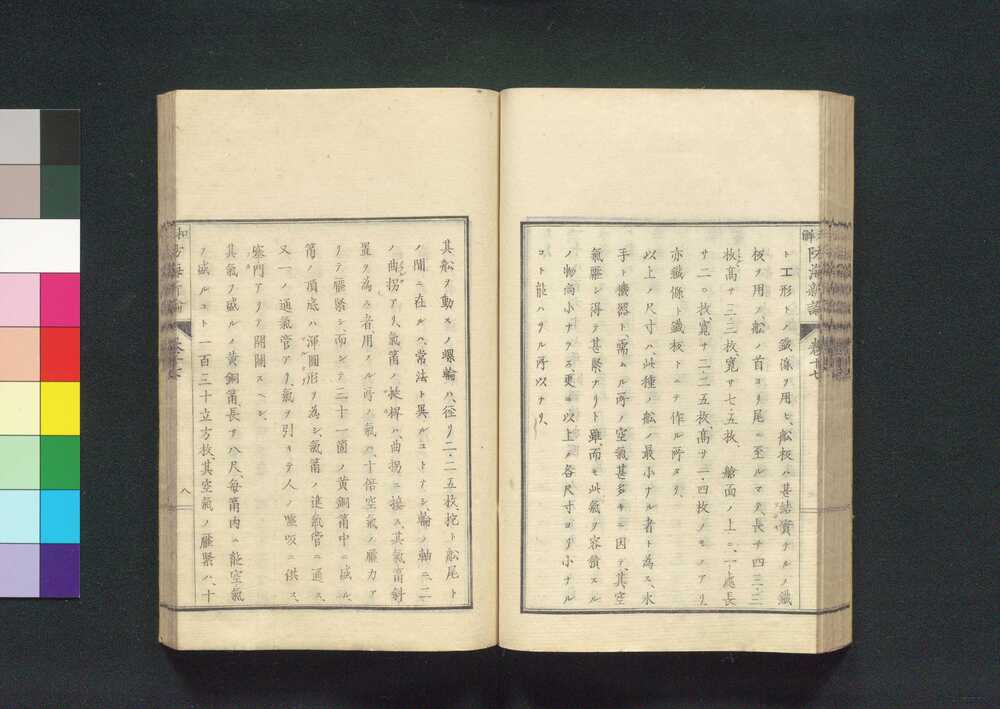 ト工形トノ鐵條ヲ用ヒ、舩板ハ甚結實ナルノ鐵
板ヲ用フ、舩ノ首ヨリ尾ニ至ルマテ、長サ四三三
枚高サ三三枚寛サ七五枚、艙面ノ上ニ、一處長
サ二〇枚寛サ二二五枚高サ一四枚ノモノアリ
亦鐵條ト鐵板トニテ作ル所ナリ、
以上ノ尺寸ハ、此種ノ舩ノ最小ナル者ト為ス、水
手ト機器ト需ムル所ノ空氣甚多キニ因テ、其空
氣壓シ得テ甚緊ナリト雖而モ此氣ヲ容積スル
ノ物尚小ナラス、更ニ以上ノ各尺寸ヨリ小ナル
コト能ハサル所以ナリ、
其舩ヲ動スノ螺輪ハ、徑リ二二五枚、柁ト舩尾ト
ノ間ニ在ルハ、常法ト異ルコトナシ、輪ノ軸ニ、二
ノ曲拐アリ、氣筩ノ挺桿ハ、曲拐ニ接ス、其氣筩斜
置ヲ為ス者、用ヰル所ノ氣ハ、十倍空氣ノ壓力ア
リテ壓緊シ、而シテ二十一箇ノ黄銅筩中ニ盛ル、
筩ノ頂底ハ渾圓形ヲ為シ、氣筩ノ進氣管ニ通ス、
又一ノ通氣管アリ、氣ヲ引キテ人ノ噓吸ニ供ス、
塞門アリテ開關スヘシ、
其氣ヲ盛ルノ黄銅筩、長サ八尺、毎筩内ニ能空氣
ヲ盛ルコト一百三十立方枚、其空氣ノ壓緊ハ、十
八